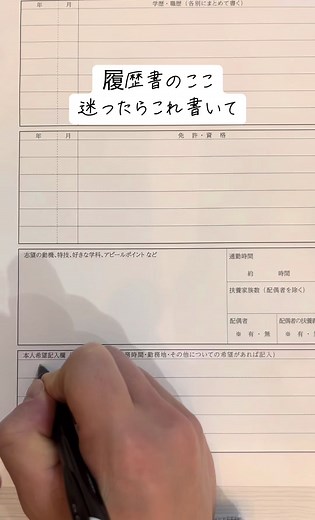 学歴・職歴（各別にまとめて書く）
履歴書のここ
迷ったらこれ書いて
年 月 免許・資格
志望の動機、特技、好きな学科、アピールポイント など
通勤時間
約 時間
扶養家族数（配偶者を除く）
配偶者 配偶者の扶養
※ 有・無 ※ 有・無
本人希望記入欄 時間・勤務地・その他についての希望があれば記入）